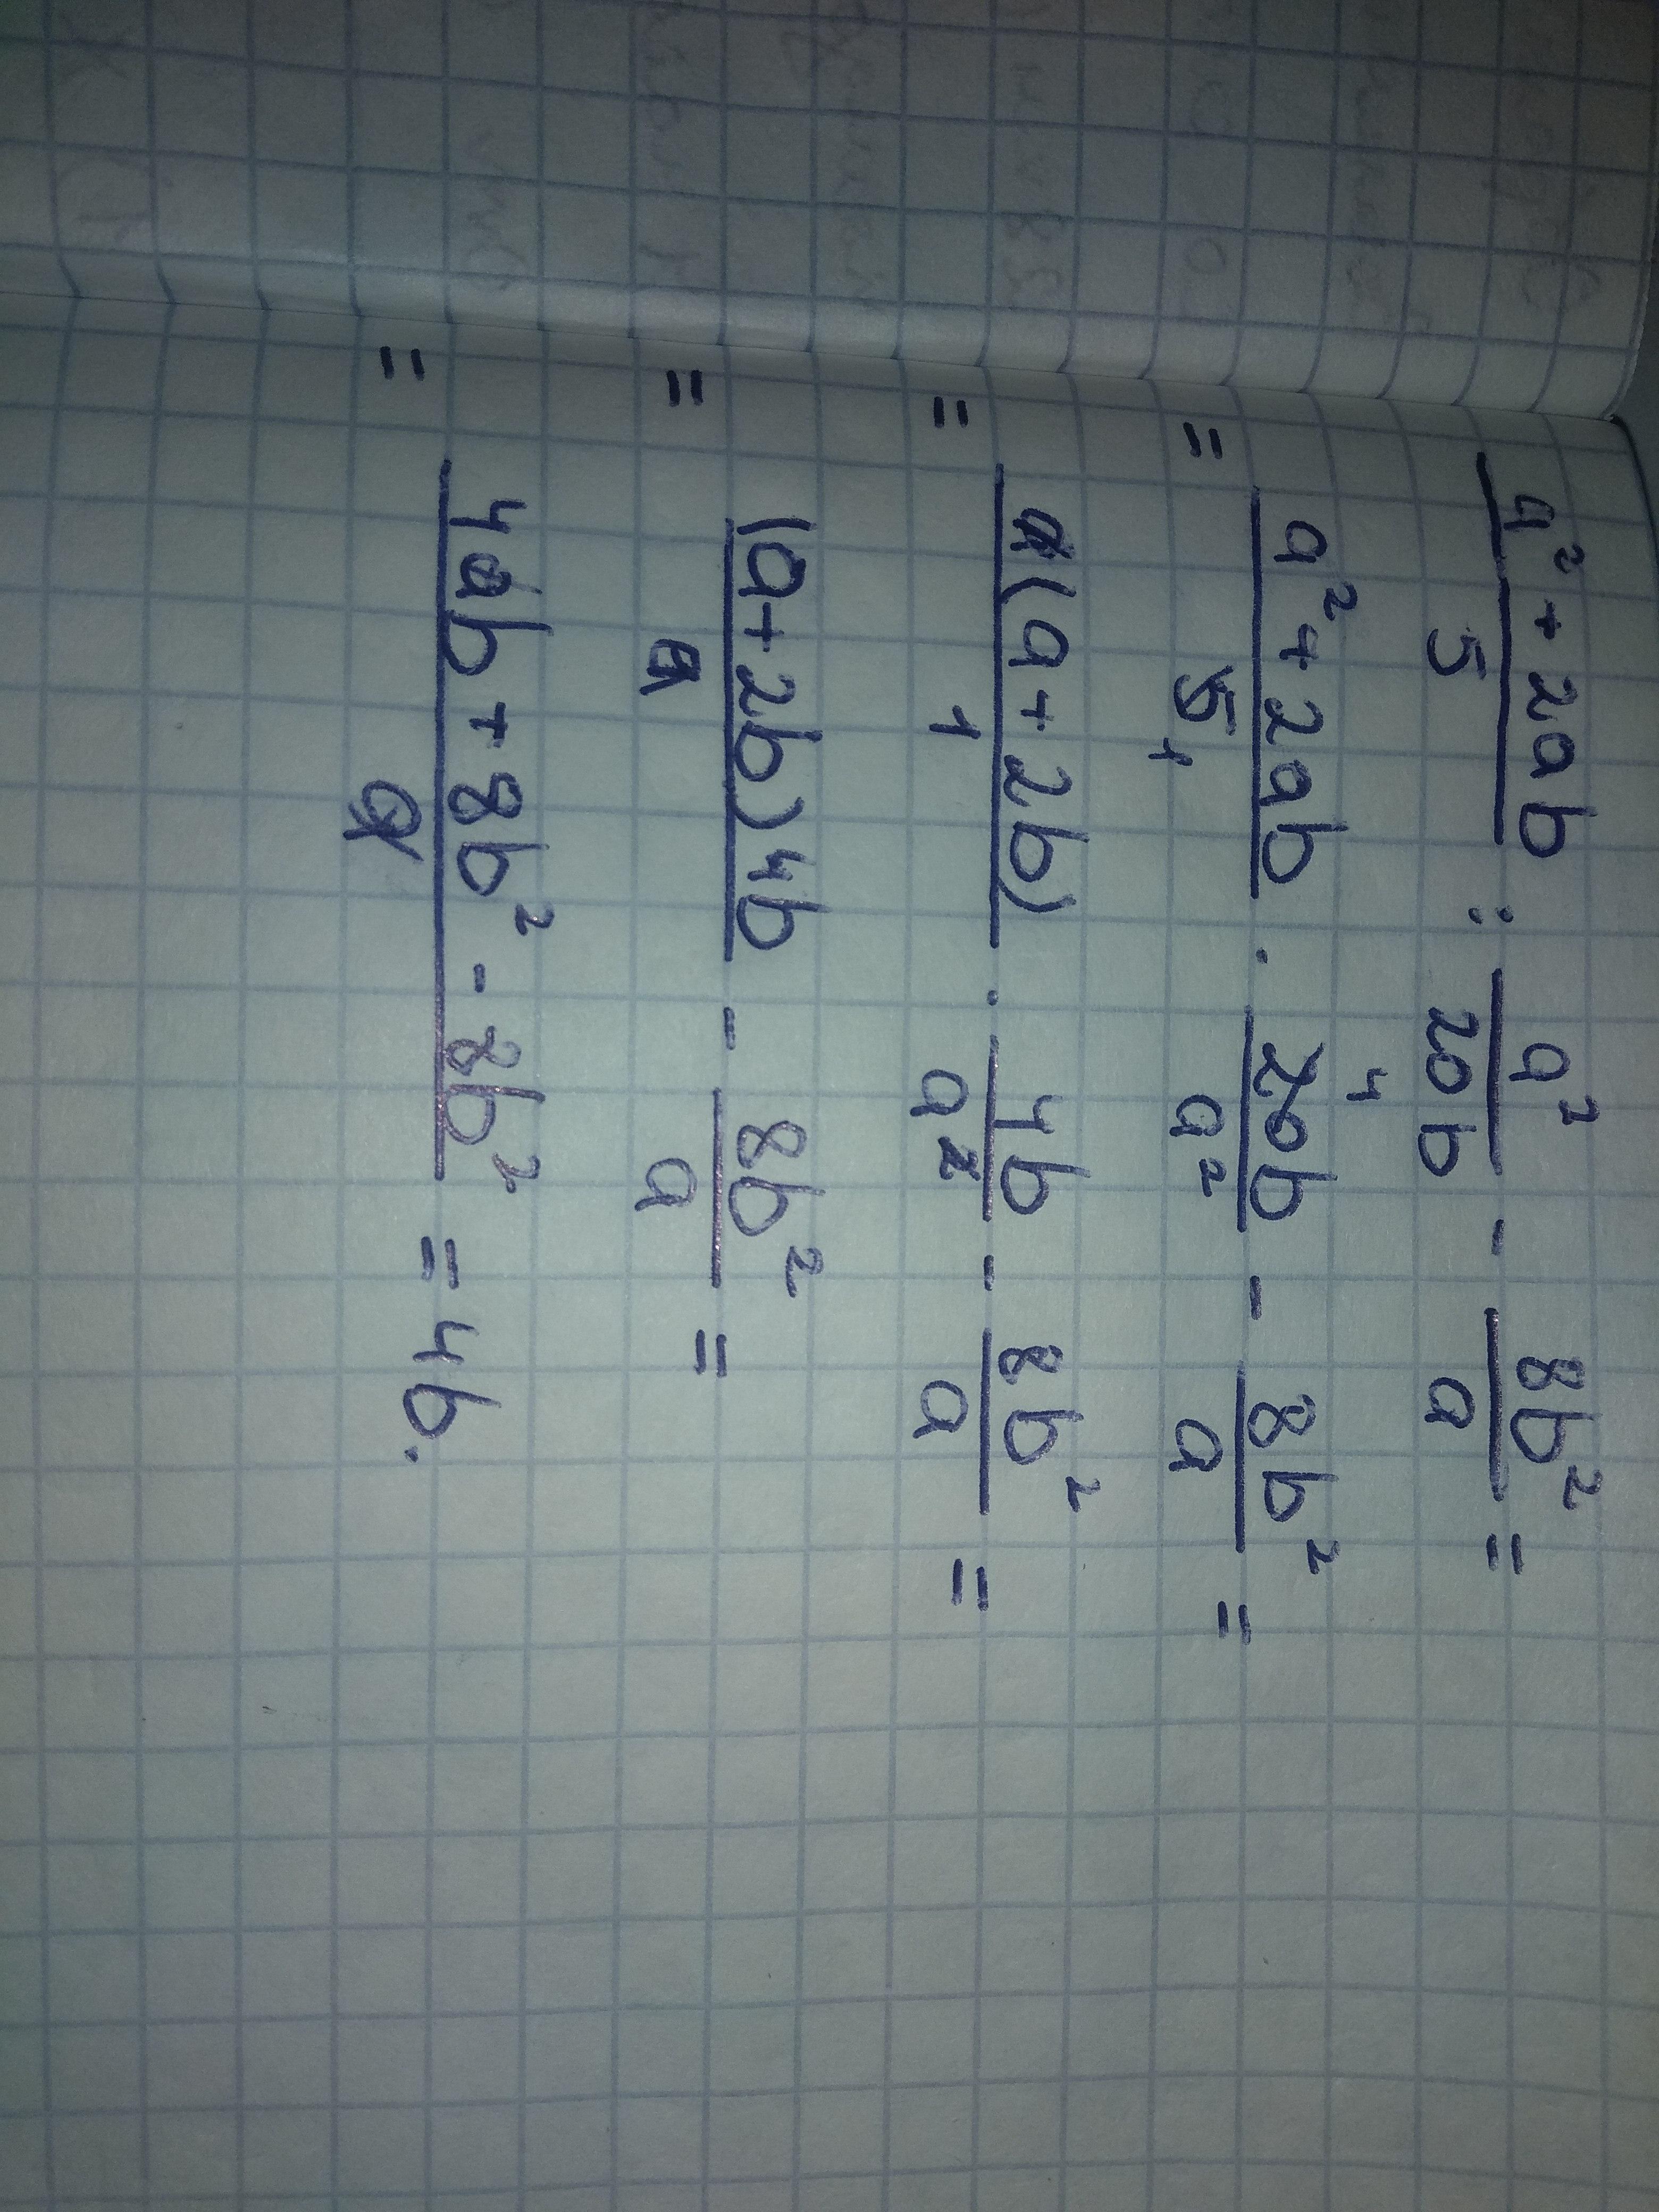 (a² + 2ab)/5 : a²/(20b) - 8b²/a =
= (a² + 2ab)/5 1 · 4 20b/a² - 8b²/a =
= a(a + 2b)/1 · 4b/a² - 8b²/a =
= (a + 2b)4b/a - 8b²/a =
= (4ab + 8b² - 8b²)/a = 4b.